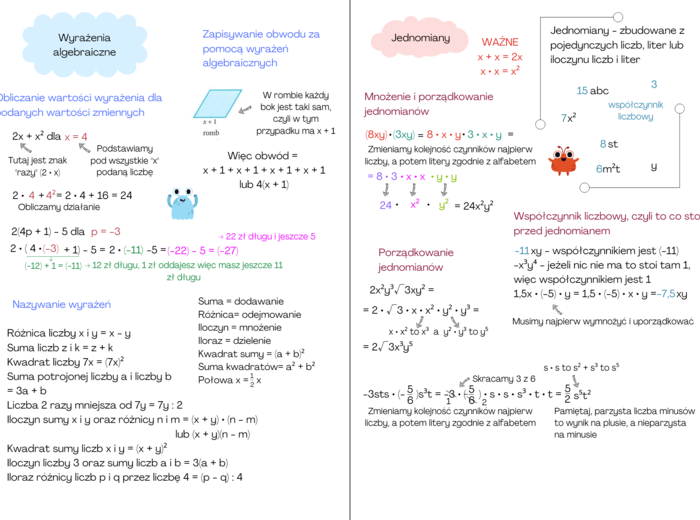 Wyrażenia
algebraiczne
Zapisywanie obwodu za
pomocą wyrażeń
algebraicznych
Obliczanie wartości wyrażenia dla
podanych wartości zmiennych
2x + x² dla x = 4
Tutaj jest znak
"razy" (2 • x)
Podstawiamy
pod wszystkie "x"
podaną liczbę
2 • 4 + 4² = 2 • 4 + 16 = 24
Obliczamy działanie
x + 1
romb
W rombie każdy
bok jest taki sam,
czyli w tym
przypadku ma x + 1
Więc obwód =
x + 1 + x + 1 + x + 1 + x + 1
lub 4(x + 1)
2(4p + 1) – 5 dla p = –3
→ 22 zł długu i jeszcze 5
2 • ( 4 •(–3) + 1) – 5 = 2 • (–11) –5 =(–22) – 5 = (–27)
(–12) + 1 = (–11) → 12 zł długu, 1 zł oddajesz więc masz jeszcze 11
zł długu
Nazywanie wyrażeń
Różnica liczby x i y = x – y
Suma liczb z i k = z + k
Kwadrat liczby 7x = (7x)²
Suma potrojonej liczby a i liczby b
= 3a + b
Liczba 2 razy mniejsza od 7y = 7y : 2
Iloczyn sumy x i y oraz różnicy n i m = (x + y) • (n – m)
lub (x + y)(n – m)
Kwadrat sumy liczb x i y = (x + y)²
Iloczyn liczby 3 oraz sumy liczb a i b = 3(a + b)
Iloraz różnicy liczb p i q przez liczbę 4 = (p – q) : 4
Suma = dodawanie
Różnica= odejmowanie
Iloczyn = mnożenie
Iloraz = dzielenie
Kwadrat sumy = (a + b)²
Suma kwadratów= a² + b²
Połowa x = 1/2 x
Jednomiany
WAŻNE
x + x = 2x
x • x = x²
Jednomiany – zbudowane z
pojedynczych liczb, liter lub
iloczynu liczb i liter
15 abc
3
współczynnik
liczbowy
7x²
8 st
6m²t
y
Mnożenie i porządkowanie
jednomianów
(8xy)•(3xy) = 8 • x • y • 3 • x • y =
Zmieniamy kolejność czynników najpierw
liczby, a potem litery zgodnie z alfabetem
= 8 • 3 • x • x • y • y
24 • x² • y² = 24x²y²
Współczynnik liczbowy, czyli to co stoi
przed jednomianem
–11xy – współczynnikiem jest (–11)
–x³y⁴ – jeżeli nic nie ma to stoi tam 1,
więc współczynnikiem jest 1
1,5x • (–5) • y = 1,5 • (–5) • x • y =–7,5xy
Musimy najpierw wymnożyć i uporządkować
Porządkowanie
jednomianów
2x²y³√3xy² =
= 2 • √3 • x • x² • y² • y³ =
x • x² to x³ a y² • y³ to y⁵
= 2√3x³y⁵
s • s to s² + s³ to s⁵
Skracamy 3 z 6
–3sts • (–5/6)s³t = –3/1 • (–5/6 2) • s • s • s³ • t • t = 5/2 s⁵t²
Zmieniamy kolejność czynników najpierw
liczby, a potem litery zgodnie z alfabetem
Pamiętaj, parzysta liczba minusów
to wynik na plusie, a nieparzysta
na minusie